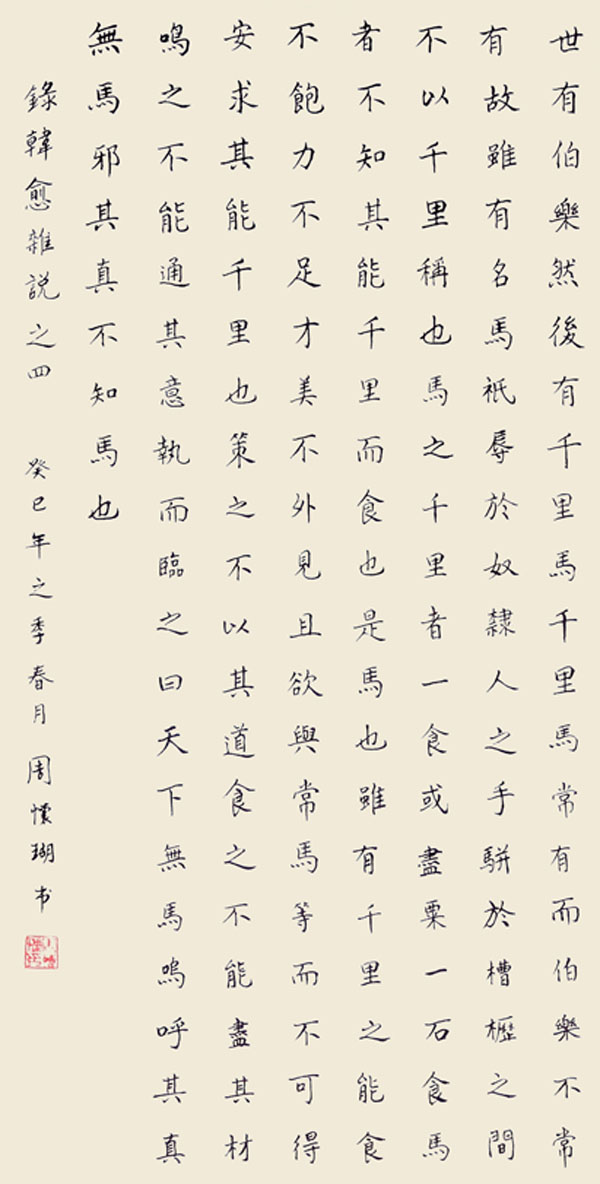 世有伯樂然後有千里馬千里馬常有而伯樂不常
有故雖有名馬祇辱於奴隸人之手駢於槽櫪之間
不以千里稱也馬之千里者一食或盡粟一石食馬
者不知其能千里而食也是馬也雖有千里之能食
不飽力不足才美不外見且欲與常馬等而不可得
安求其能千里也策之不以其道食之不能盡其材
鳴之不能通其意執而臨之曰天下無馬嗚呼其真
無馬邪其真不知馬也
錄韓愈雜説之四 癸巳年之季春月周懷瑚书